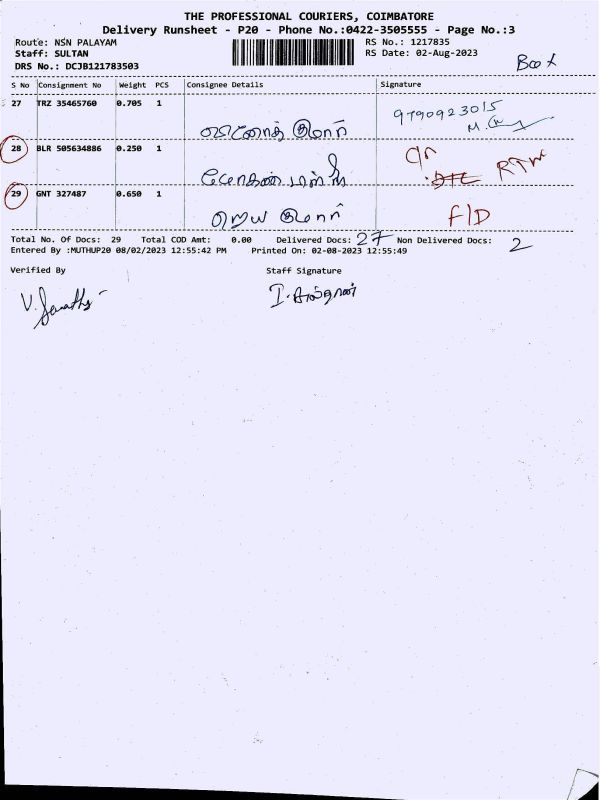 THE PROFESSIONAL COURIERS, COIMBATORE
Delivery Runsheet - P20 - Phone No.:0422-3505555 - Page No.:3
Route: NSN PALAYAM RS No.: 1217835
Staff: SULTAN RS Date: 02-Aug-2023
DRS No.: DCJB121783503
S No Consignment No Weight PCS Consignee Details Signature
27 TRZ 35465760 0.705 1 9790923015
குமார்
28 BLR 505634886 0.250 1
29 GNT 327487 0.650 1
குமார் F/D
Total No. Of Docs: 29 Total COD Amt: 0.00 Delivered Docs: 27 Non Delivered Docs: 2
Entered By :MUTHUP20 08/02/2023 12:55:42 PM Printed On: 02-08-2023 12:55:49
Verified By Staff Signature